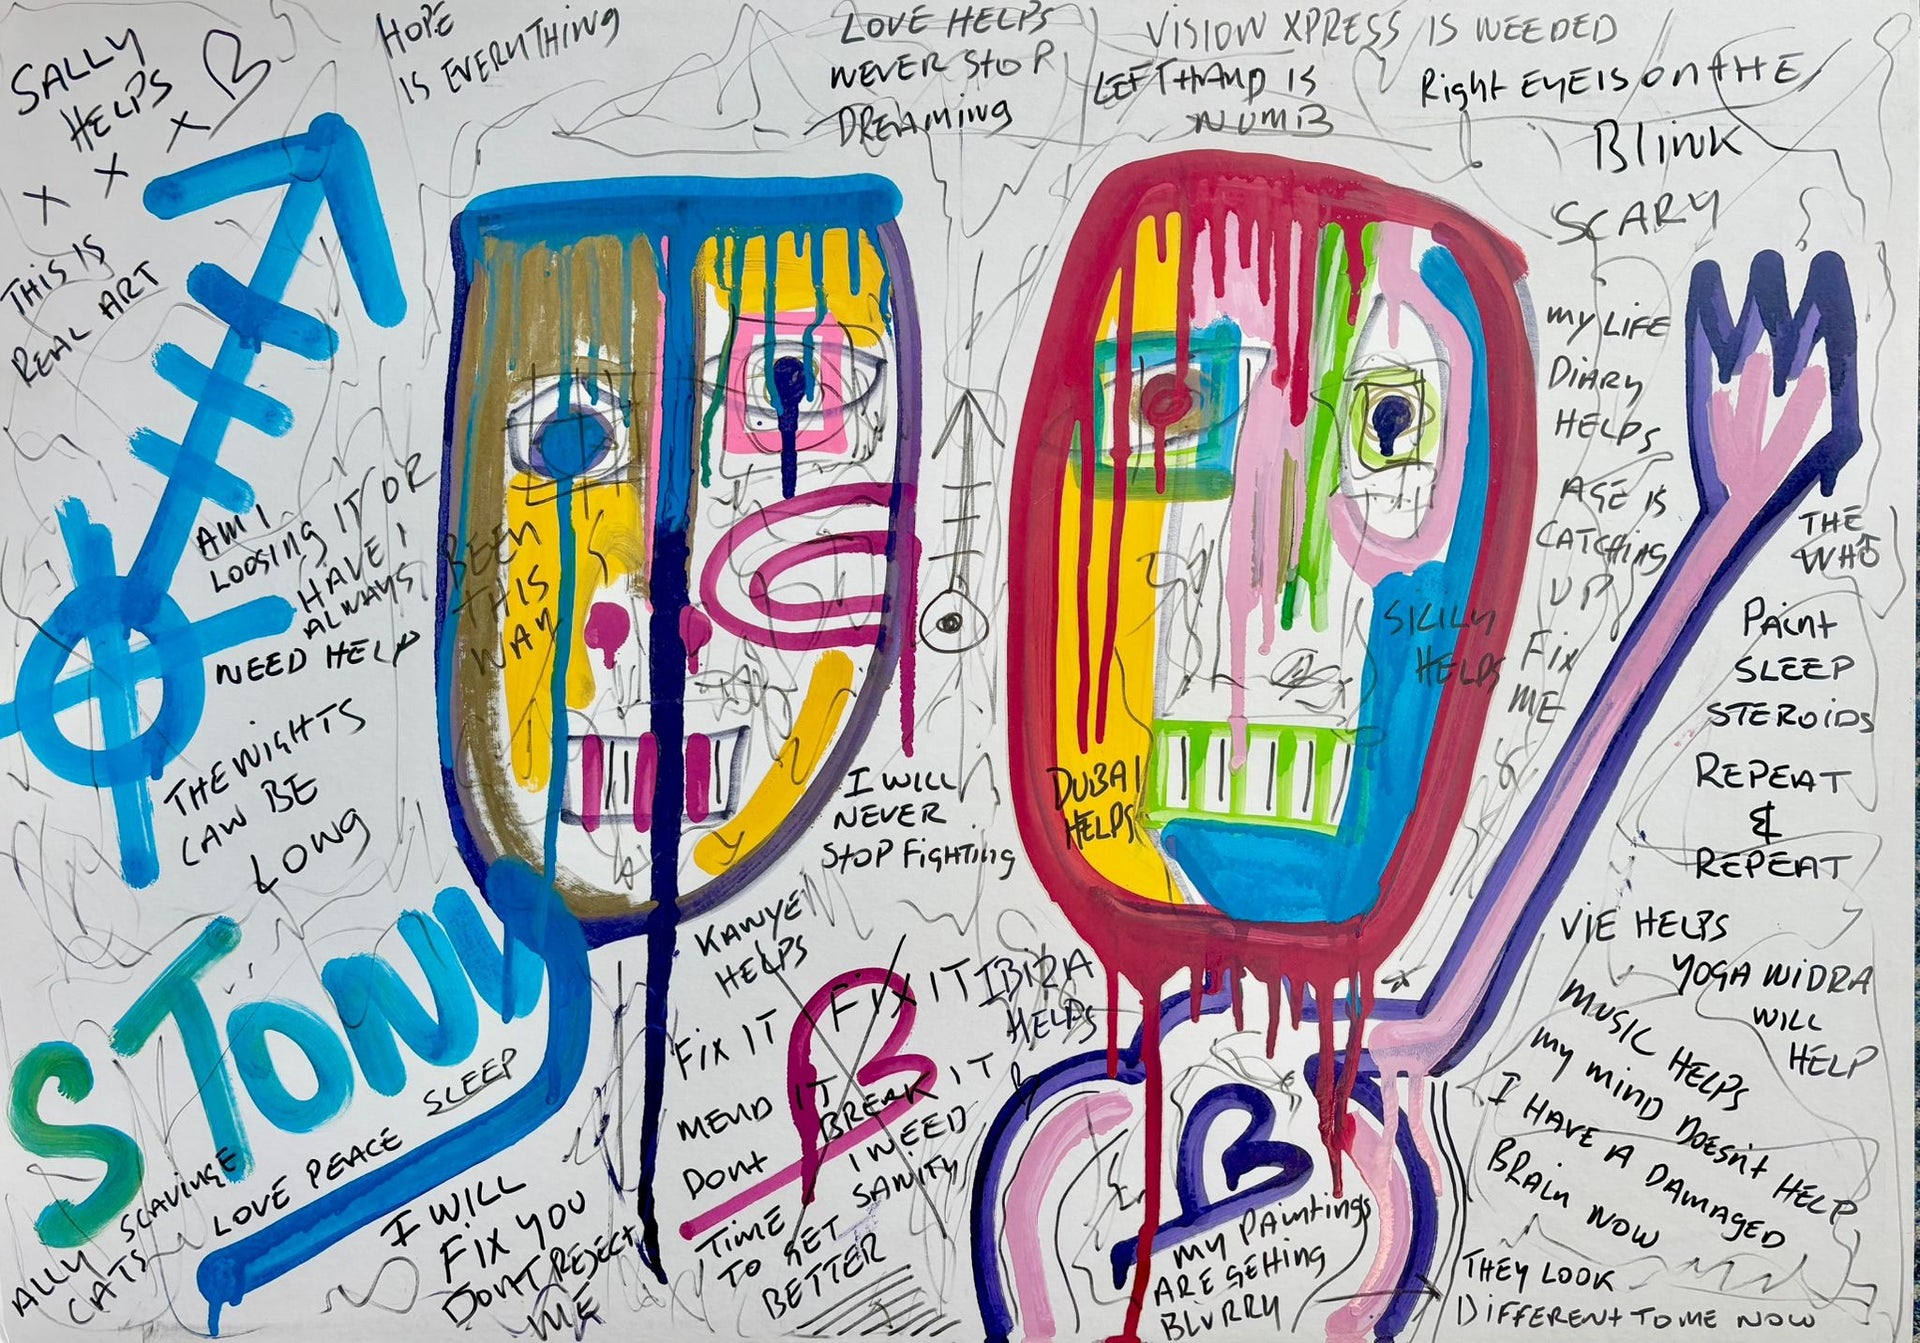 SALLY
HELPS
X X X X
THIS IS
REAL ART
HOPE
IS EVERYTHING
LOVE HELPS
NEVER STOP
DREAMING
VISION XPRESS IS NEEDED
LEFT HAND IS
NUMB
Right EYE IS ON THE
Blink
SCARY
MY LIFE
DIARY
HELPS
AGE IS
CATCHING
UP
FIX
ME
THE
WHO
PAINT
SLEEP
STEROIDS
REPEAT
&
REPEAT
AM I
LOOSING IT OR
HAVE I
ALWAYS
NEED HELP
BEEN
THIS
WAY
THE NIGHTS
CAN BE
LONG
I WILL
NEVER
STOP FIGHTING
DUBAI
HELPS
SICILY
HELPS
KANYE
HELPS
FIX IT FIX IT
IBIZA
HELPS
MEND IT
DONT BREAK IT
I NEED
SANITY
TIME
TO GET
BETTER
STONN
LOVE PEACE SLEEP
ALLY SCAVING
CATS
I WILL
FIX YOU
DONT REJECT
ME
MY PAINTINGS
ARE GETTING
BLURRY
VIE HELPS
YOGA NIDRA
WILL
HELP
MUSIC HELPS
MY MIND DOESN'T HELP
I HAVE A DAMAGED
BRAIN NOW
THEY LOOK
DIFFERENT TO ME NOW